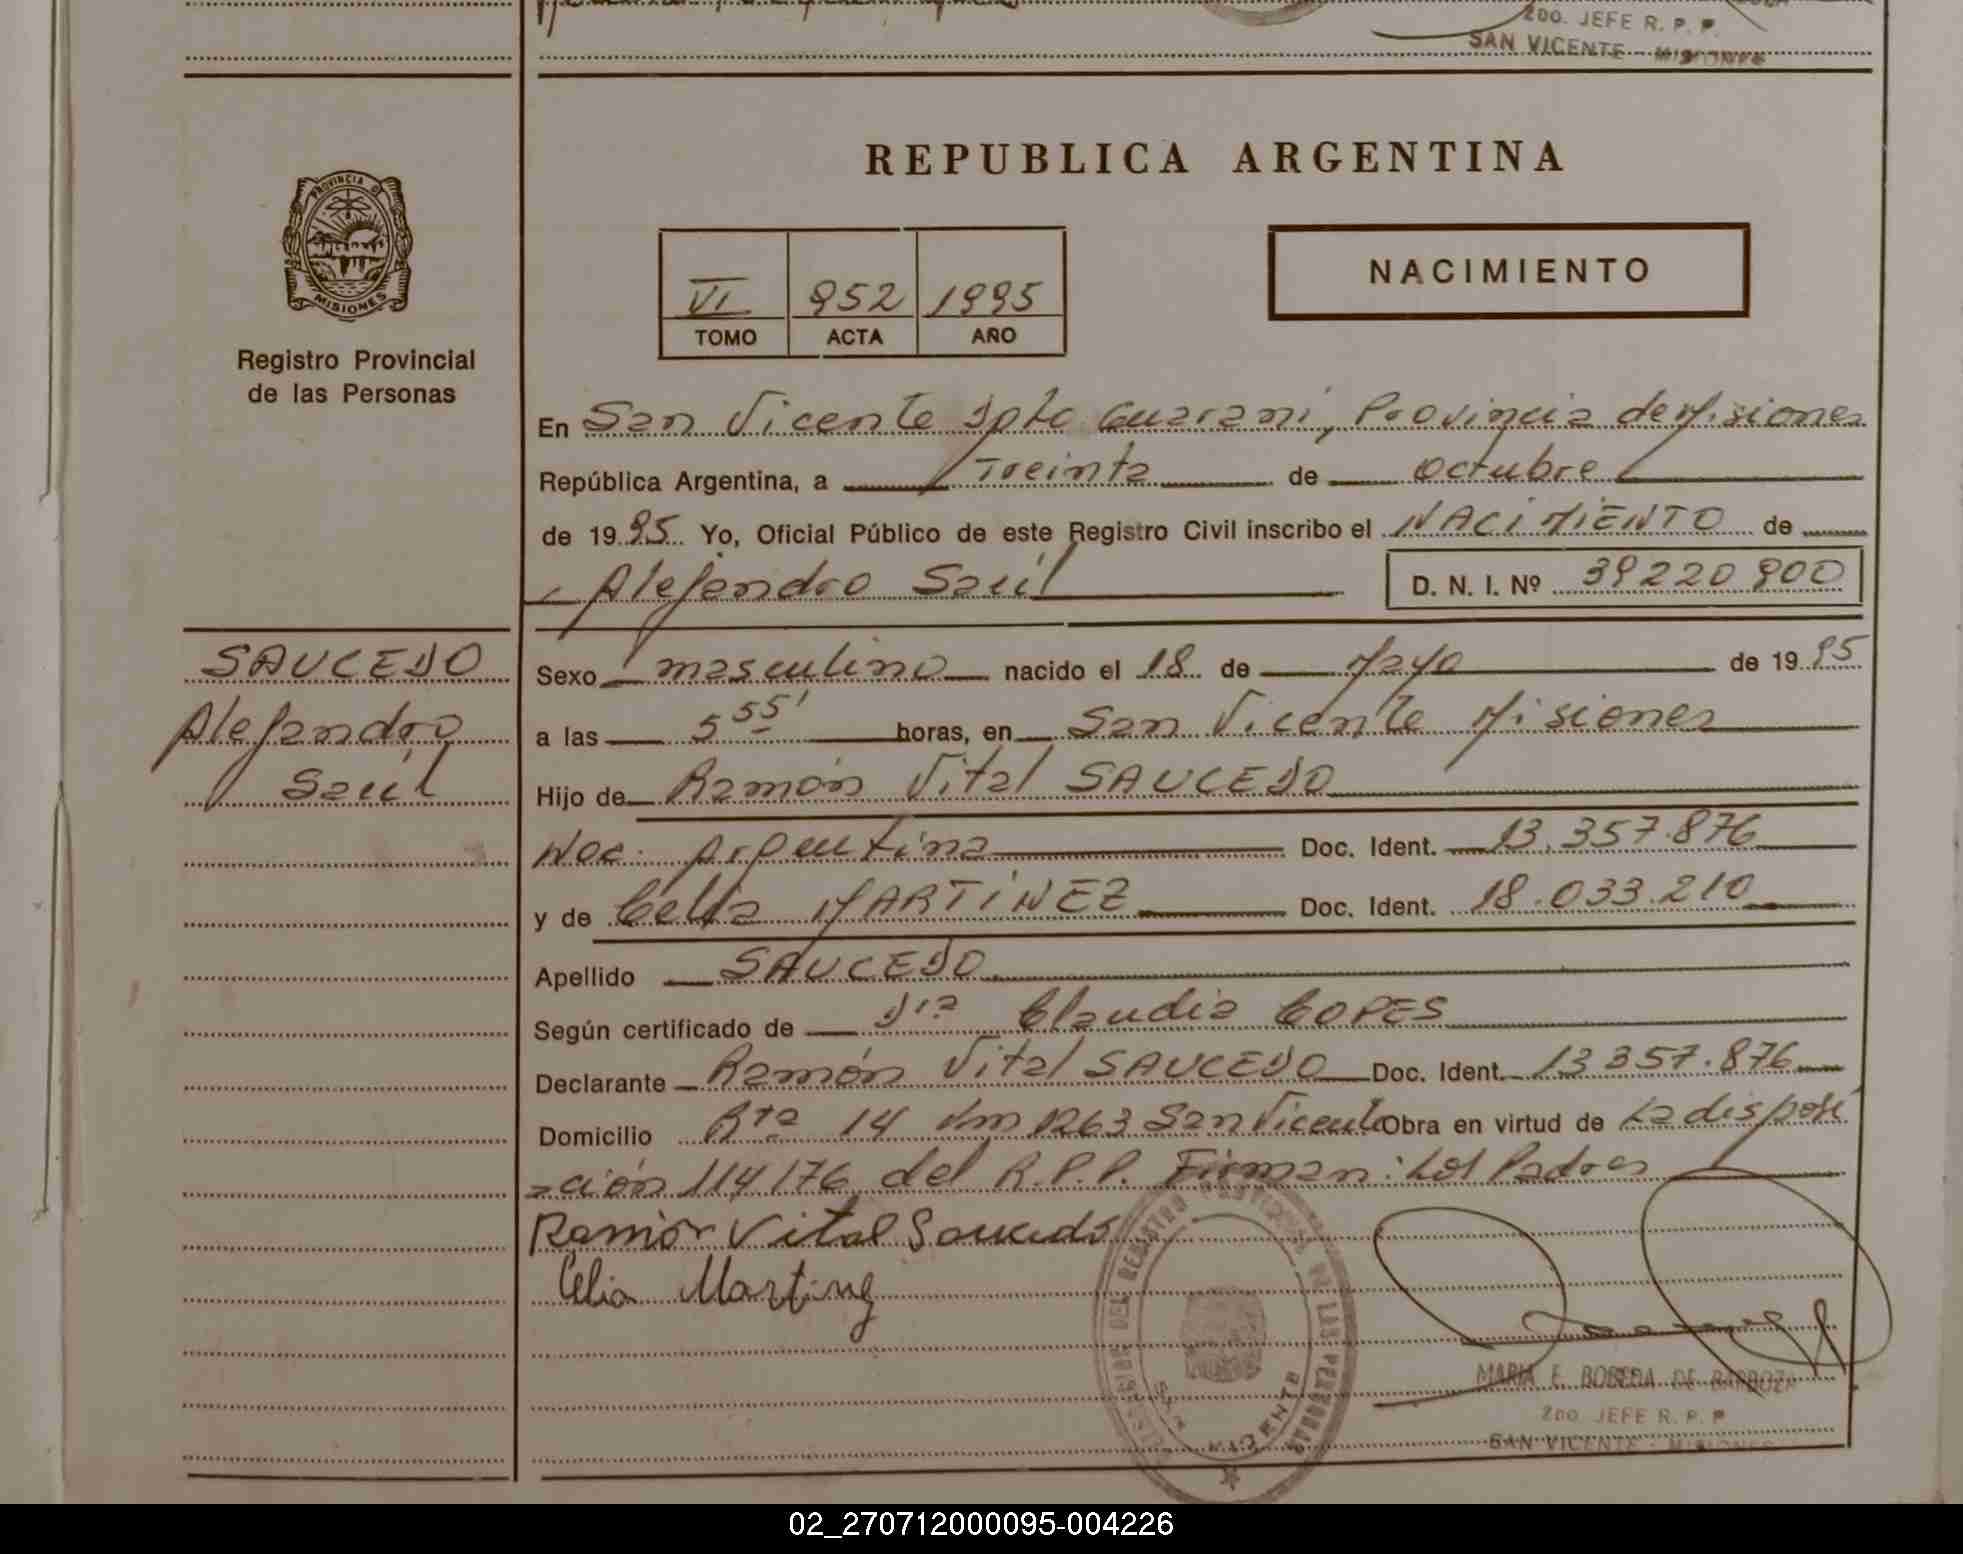 2DO. JEFE R. P. P.
SAN VICENTE - MISIONES
PROVINCIA D
MISIONES
Registro Provincial
de las Personas
REPUBLICA ARGENTINA
VI 952 1995
TOMO ACTA AÑO
NACIMIENTO
En San Vicente Dpto Guaraní, Provincia de Misiones
República Argentina, a Treinta de Octubre
de 1995 Yo, Oficial Público de este Registro Civil inscribo el NACIMIENTO de
Alejandro Saúl D. N. I. Nº 39220900
SAUCEDO
Alejandro
Saúl
Sexo masculino nacido el 18 de Mayo de 1995
a las 5 55' horas, en San Vicente Misiones
Hijo de Ramón Vital SAUCEDO
Nac. Argentina Doc. Ident. 13.357.876
y de Celia MARTÍNEZ Doc. Ident. 18.033.210
Apellido SAUCEDO
Según certificado de Dra Claudia COPES
Declarante Ramón Vital SAUCEDO Doc. Ident. 13 357.876
Domicilio Rta 14 Km 1263 San Vicente Obra en virtud de La disposi
ción 114/76 del R.P.P. Firman: Los Padres
Ramón Vital Saucedo
Celia Martinez
VICENTE
MARIA E. BOBEDA DE BARBOZA
2DO. JEFE R. P. P
SAN VICENTE - MISIONES
02_270712000095-004226